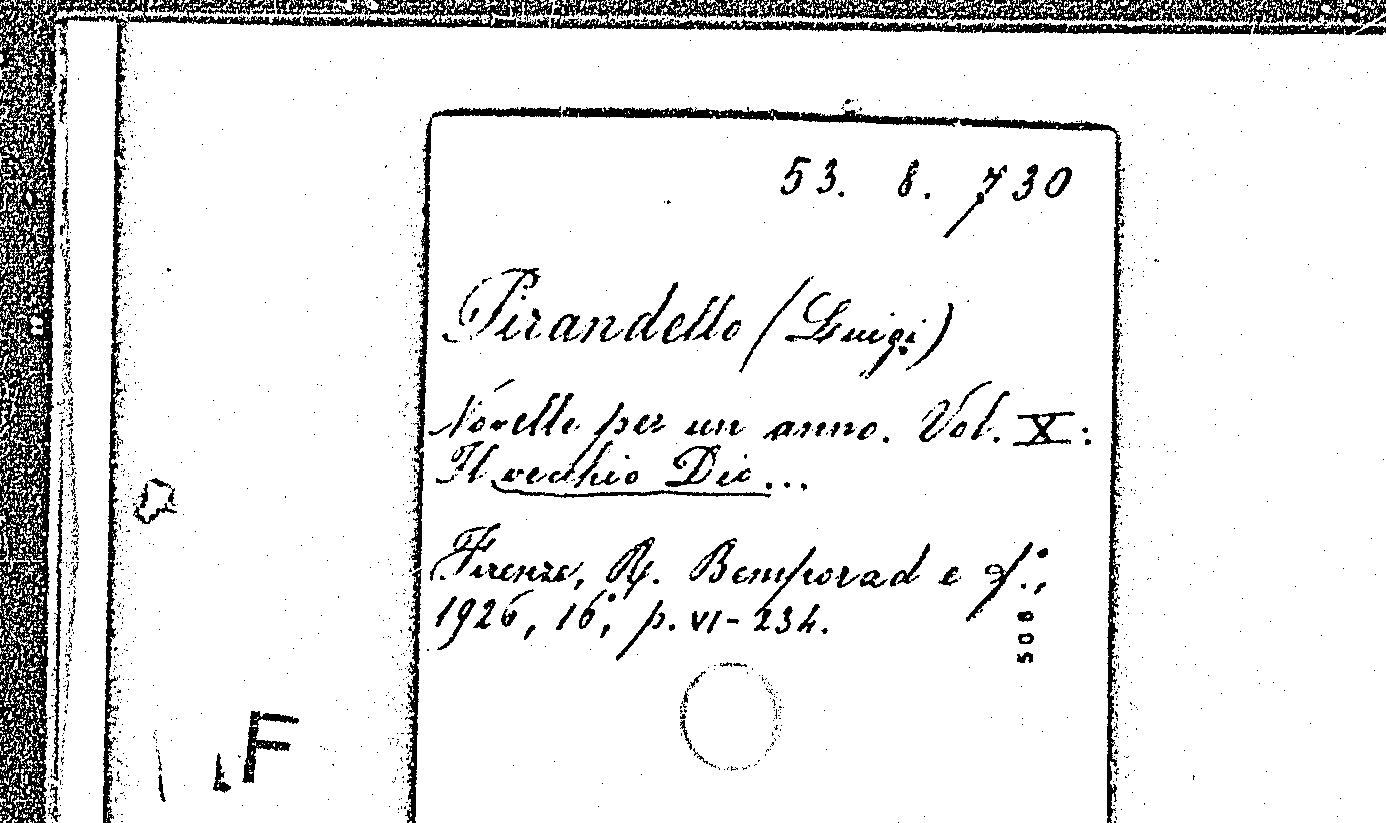 53. 8. 730
Pirandello (Luigi)
Novelle per un anno. Vol. X:
Il vecchio Dio...
Firenze, R. Bemporad e f.°,
1926, 16°, p. VI-234.
508
F